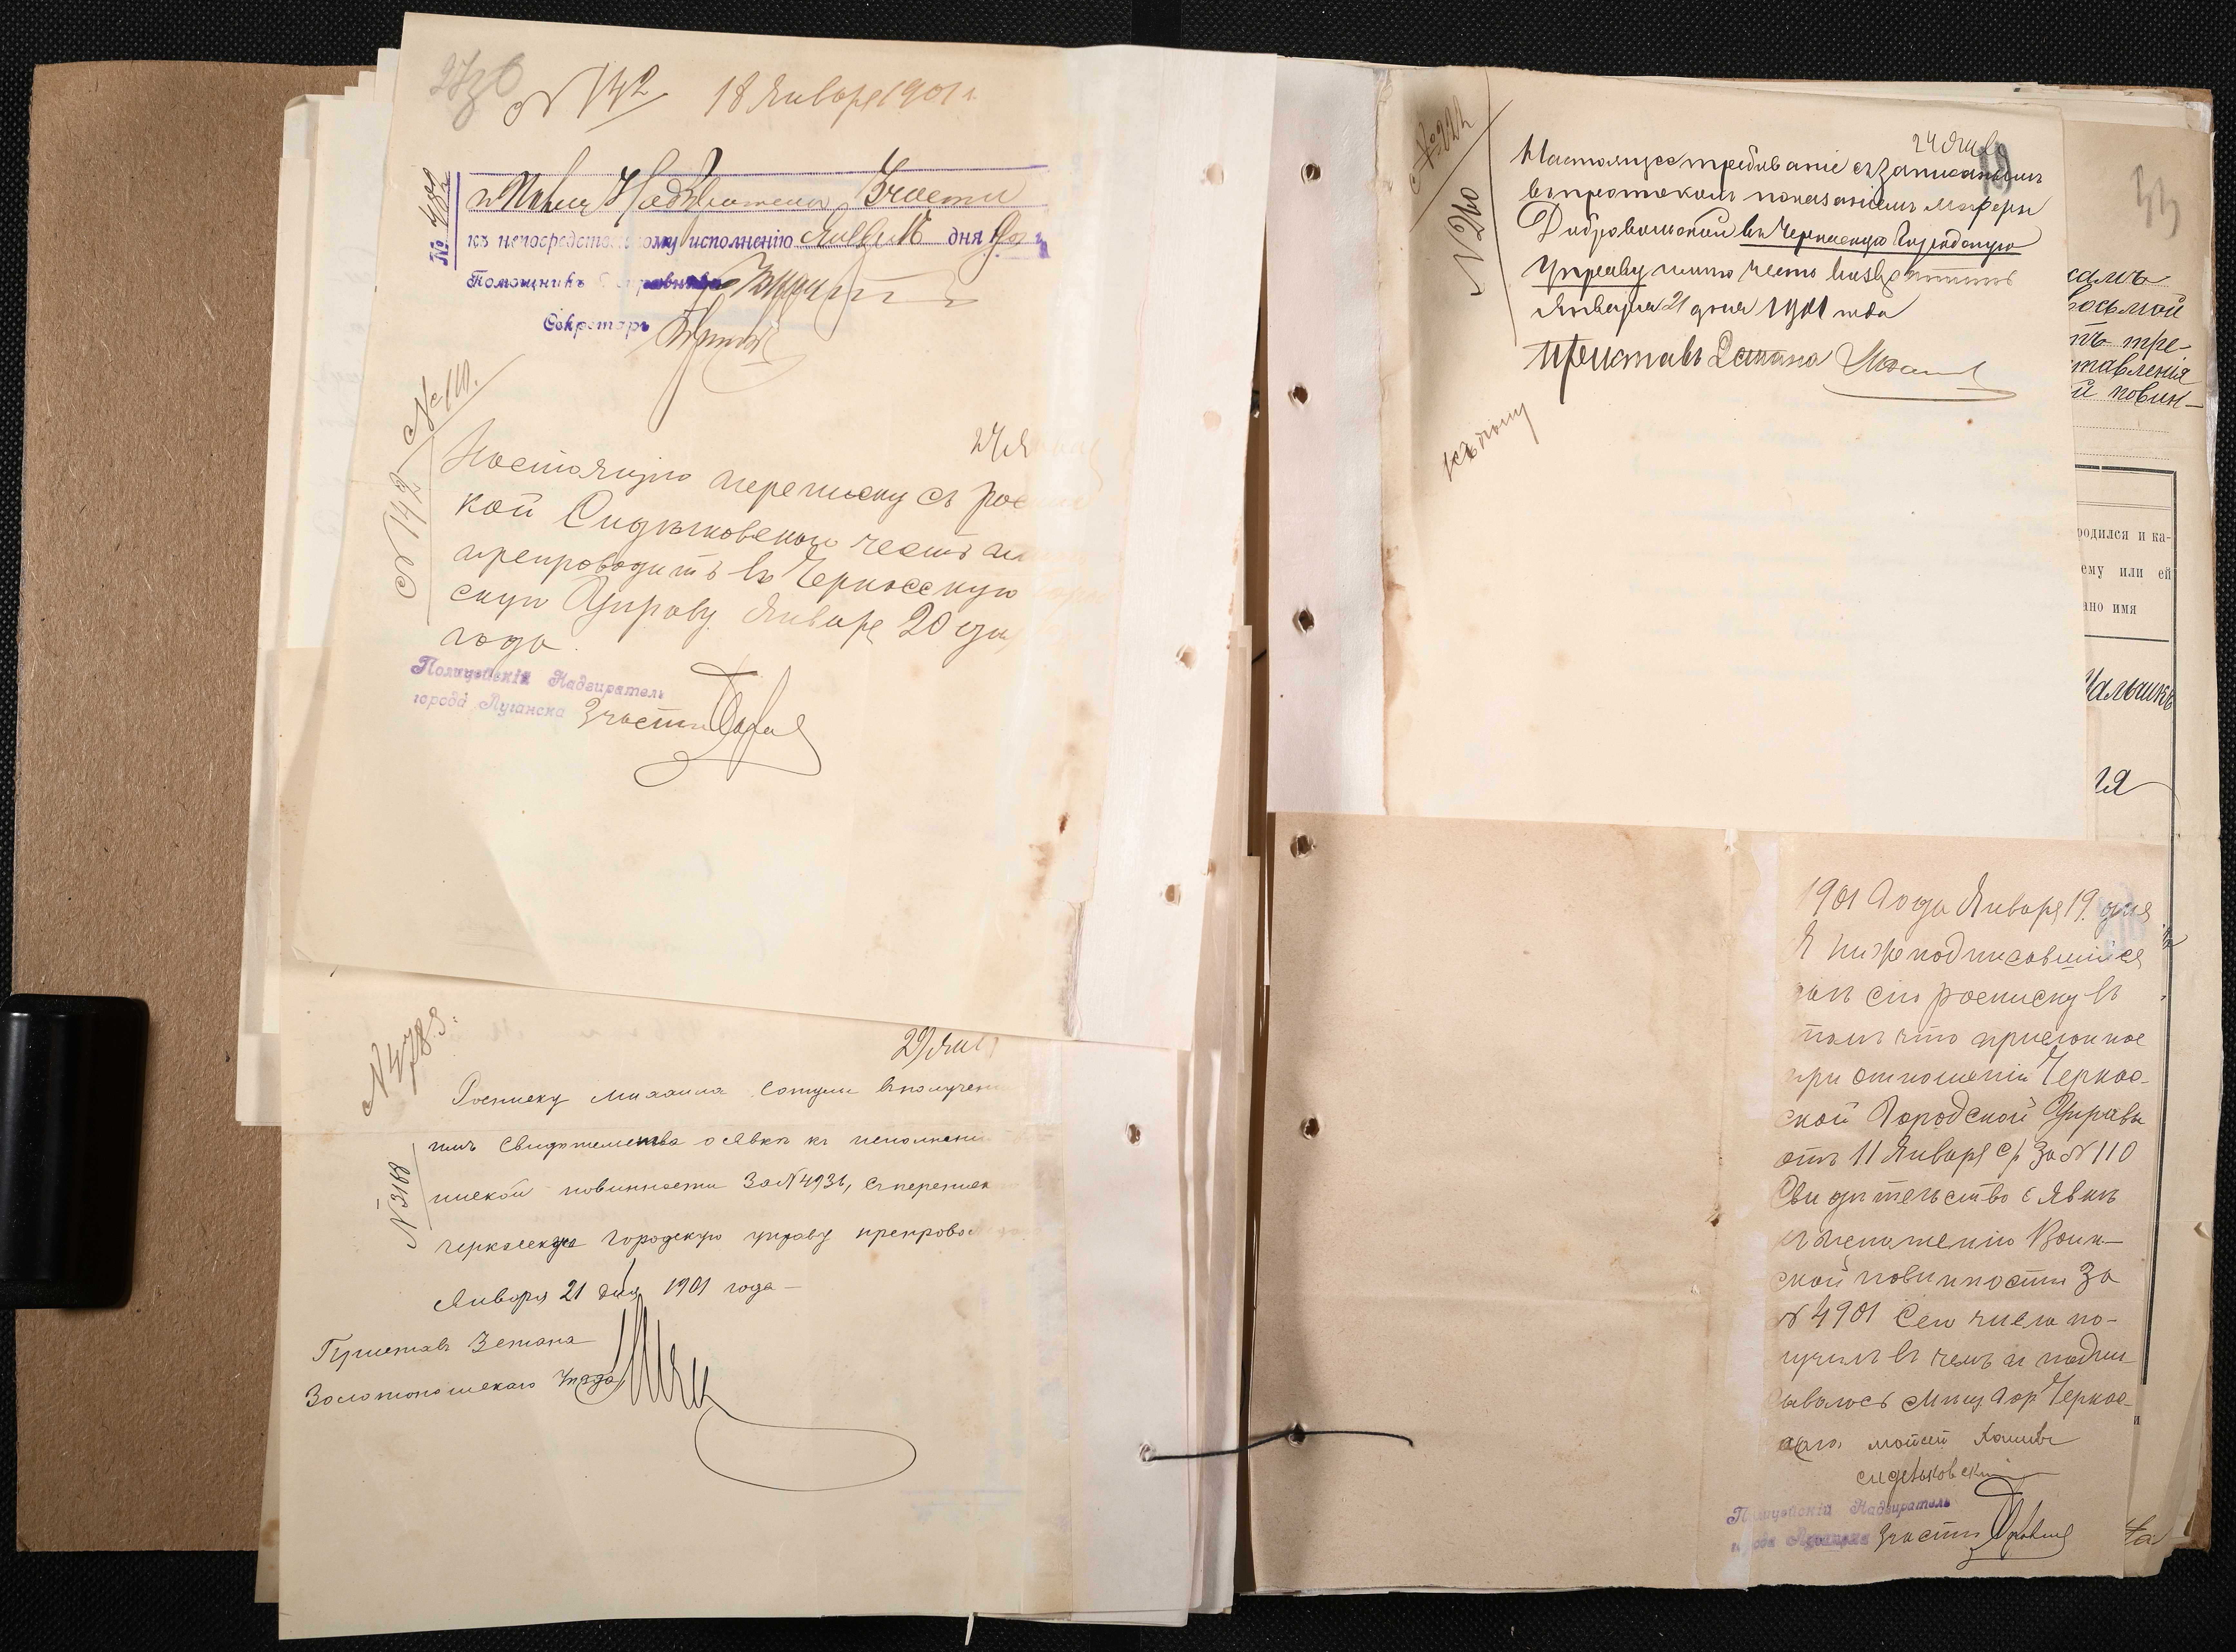 2730
№ 142 18 Января 1901 г.
№ 489
Надзирателю 3 части
къ непосредственному исполненію Января 16 дня 1901 г.
Помощникъ Исправника
Секретарь
№ 110.
№ 142
24 Я
Настоящую переписку съ рос
кой Сидьковскаго честь им
препроводить въ Черкасскую
скую Управу. Января 20 дня
года.
Полицейскій Надзиратель
города Луганска 3 части
№ 4783.
29 Янв
№ 3168
Росписку Михаила Сотули въ получен
имъ свидѣтельства о явкѣ къ исполнені
инской повинности за № 4936, съ переписк
Черкасскую городскую управу препровож
Января 21 дня 1901 года —
Приставъ 3 стана
Золотоношскаго уѣзда
№ 224
№ 260
24 Янв
Настоящее требованіе съ записаннымъ
въ протоколъ показаніемъ матери
Добровольской въ Черкасскую Городскую
Управу имѣю честь возвратить
Января 21 дня 1901 года
Приставъ 2 стана
къ дѣлу
33
самъ
восьмой
тъ тре-
ставленія
й повин-
родился и ка-
ему или ей
ано имя
Мальчикъ
ія
1901 Года Января 19 дня
Я нижеподписавшійся
далъ сію росписку въ
томъ что присланное
при отношеніи Черкас-
ской Городской Управы
отъ 11 Января с/г за № 110
Свидѣтельство о явкѣ
къ исполненію Воин-
ской повинности за
№ 4901 Сего числа по-
лучилъ въ чемъ и подпи-
сываюсь Мѣщ. Гор. Черкас-
Мойсей
Сидельковскій
Полицейскій Надзиратель
города Луганска 3 части